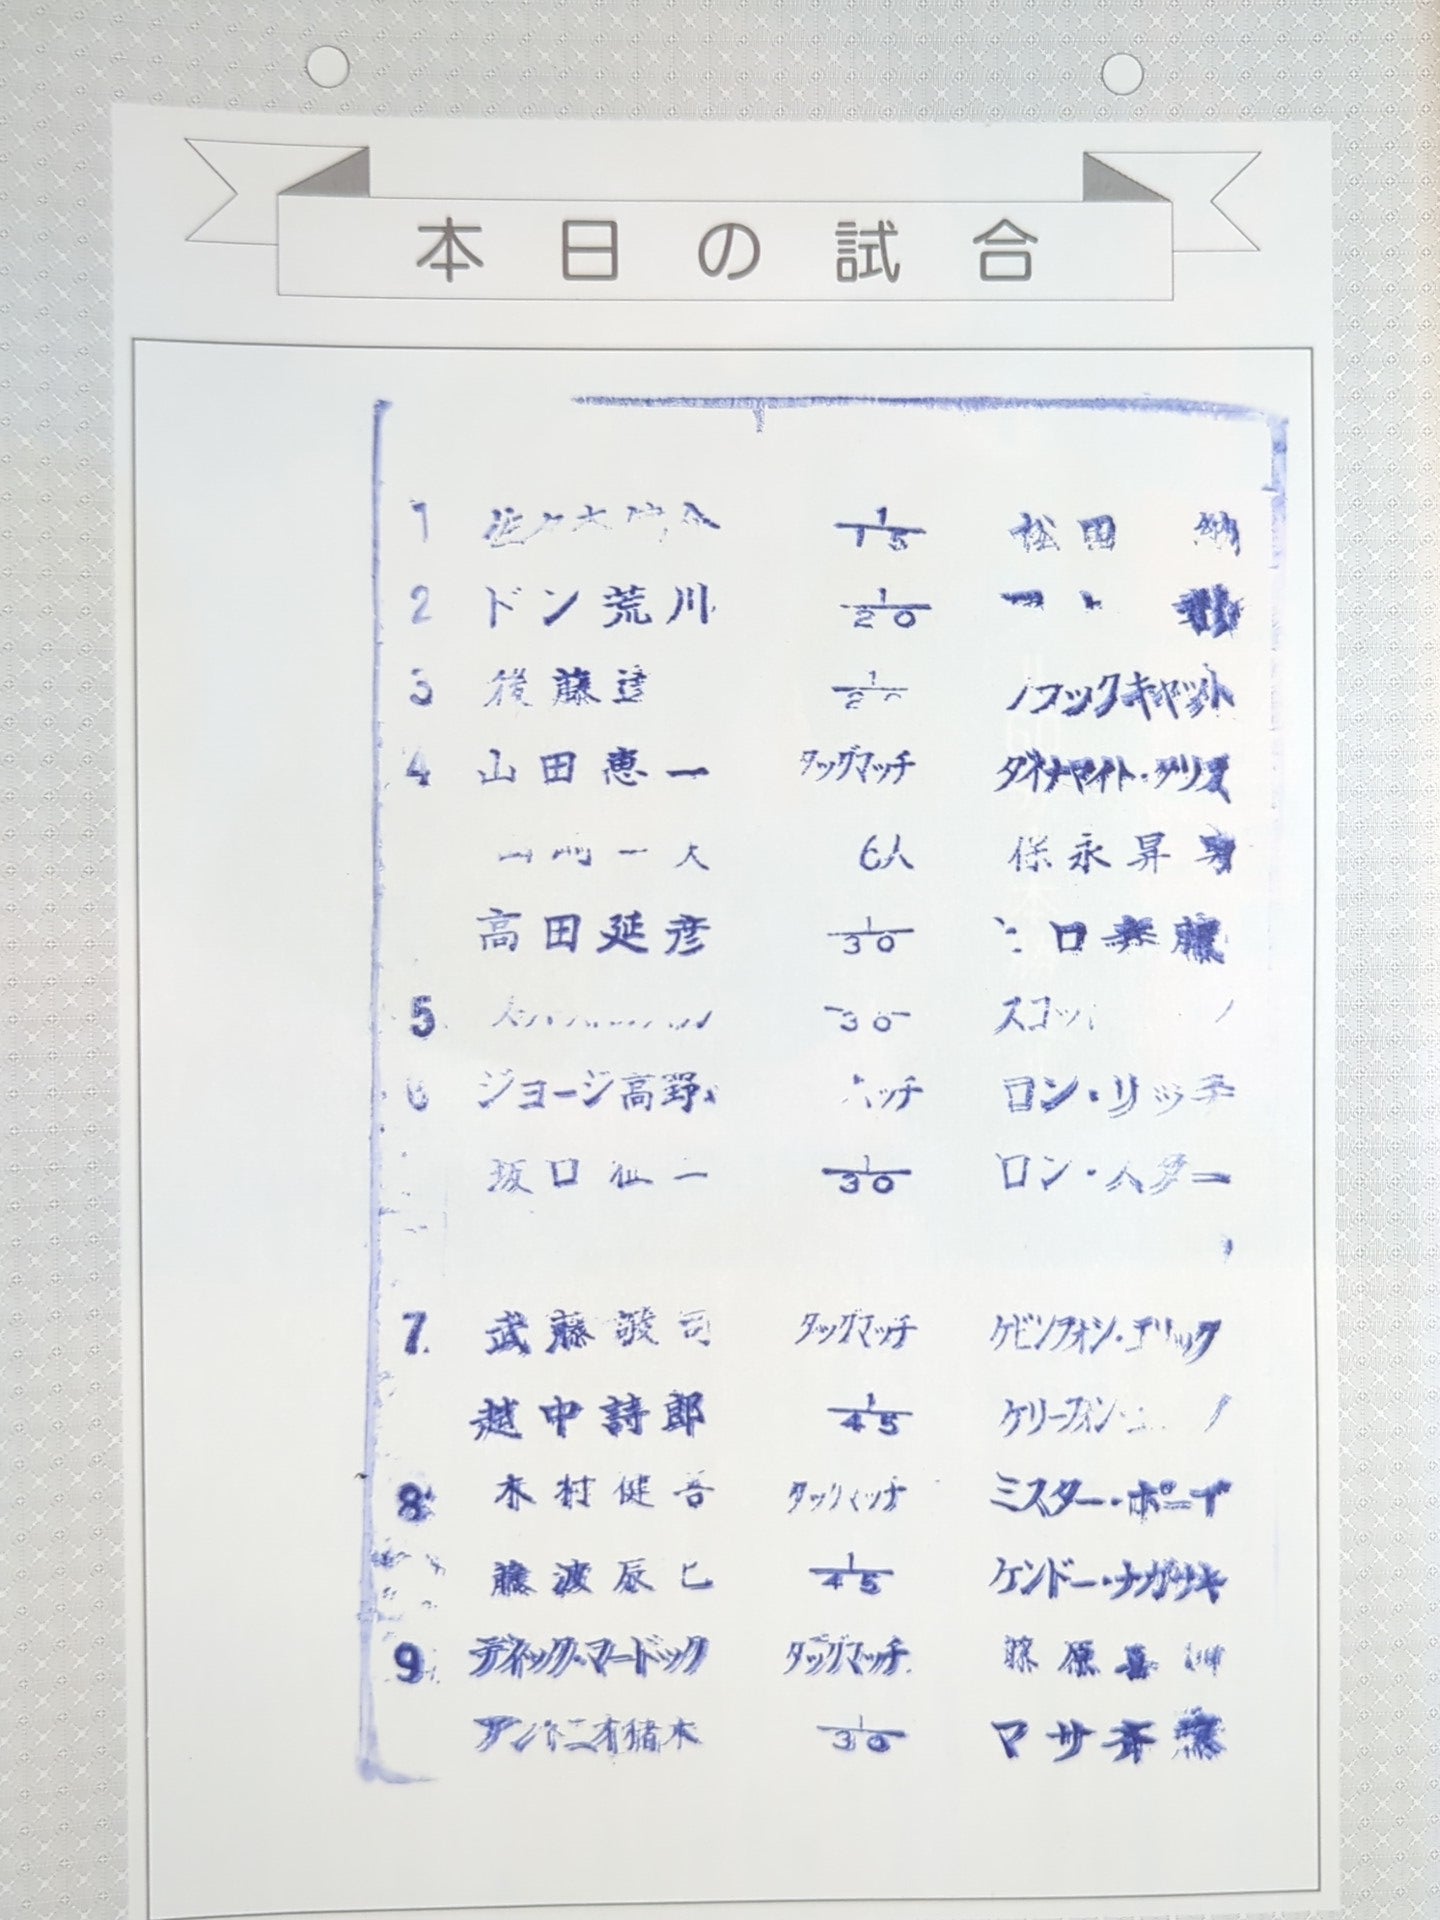 本日の試合
1 1/15 松田 納
2 ドン荒川 1/20
3 後藤達 1/20 ブラックキャット
4 山田恵一 タッグマッチ ダイナマイト・クリス
6人 保永昇男
高田延彦 1/30 ヒロ斉藤
5 30 スコッ
6 ジョージ高野 マッチ ロン・リッチ
坂口征二 1/30 ロン・スター
7. 武藤敬司 タッグマッチ ケビンフォン・エリック
越中詩郎 1/45 ケリーフォン・
8 木村健吾 タッグマッチ ミスター・ポーゴ
藤波辰巳 1/45 ケンドー・ナガサキ
9 ディック・マードック タッグマッチ 藤原喜明
アントニオ猪木 1/30 マサ斉藤